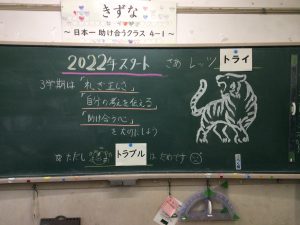 きずな
～日本一 助け合うクラス 4-1～
2022年スタート さあ レッツ トライ
3学期は「れいぎ正しさ」
「自分の考えを伝える」
「助け合う心」
を大切にしよう
ただし
トラブル
はだめです